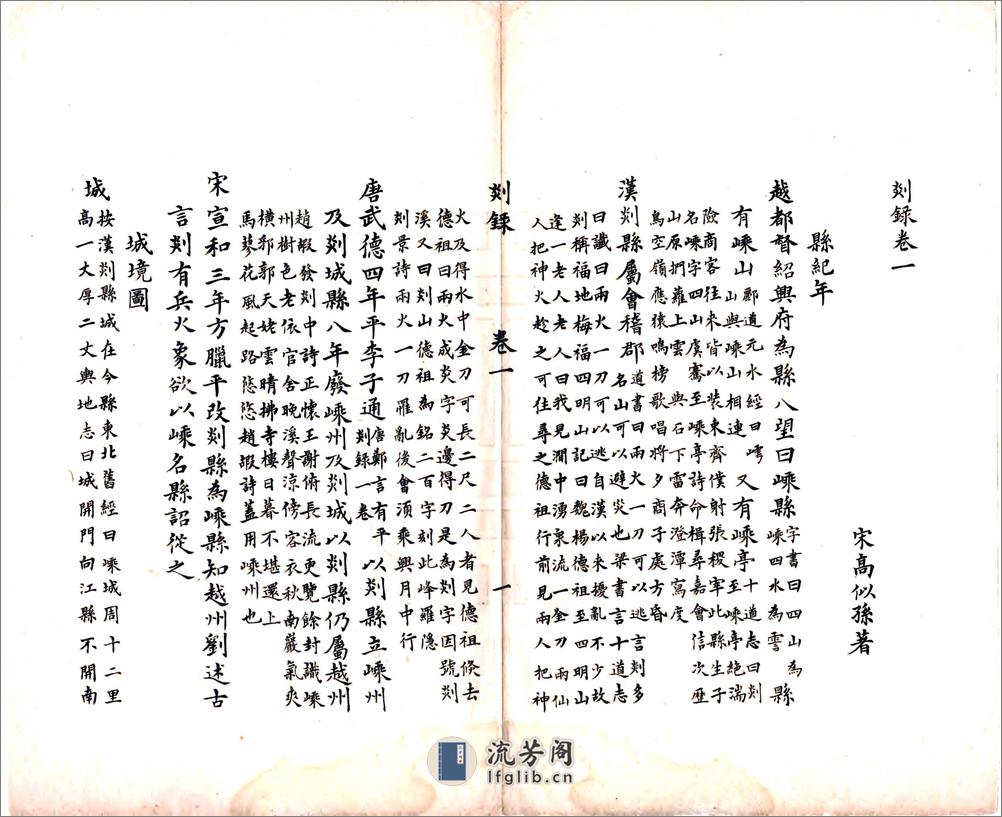 剡錄卷一
宋高似孫著
縣紀年
越都督紹興府為縣八望曰嵊縣字書曰四山為縣
嵊四水為雲
有嵊山酈道元水經曰嶀
山與嵊山相連
又有嵊亭十道志曰剡
至嵊亭絶湍
險商客往來皆以裝束齊僕射張稷宰此縣生子
名嵊字四山虞騫至嵊亭詩命楫尋嘉會信次歷
山原捫蘿上雲與石下雷奔澄潭寫度
鳥空嶺應猿鳴榜歌唱將夕商子處方昏
漢剡縣屬會稽郡道書曰兩火一刀可以逃言剡多
名山可以避災也梁書言十道志
曰讖曰兩火一刀可以逃自漢以來擾亂不少故
剡稱福地梅福四明山記曰魏楊德祖至四明山
逢一老人老人曰我見澗中湧泉流一金刀兩仙
人把神火趁之可往尋之德祖行前見兩人把神
剡錄 卷一 一
火及得水中金刀可長二尺二人者見德祖倏去
德祖曰兩火成炎字炎邊得刀是為剡字因號剡
溪又曰剡山德祖為銘二百字刻此峰羅隱
剡景詩兩火一刀罹亂後會須乘興月中行
唐武德四年平李子通唐鄭言有平
剡錄一卷
以剡縣立嵊州
及剡城縣八年廢嵊州及剡城以剡縣仍屬越州
趙嘏發剡中詩正懷王謝俯長流更覽餘封識嵊
州樹色老依官舍晚溪聲涼傍客衣秋南巖氣爽
橫郛郭天姥雲晴拂寺樓日暮不堪還上
馬蓼花風起路悠悠趙嘏詩蓋用嵊州也
宋宣和三年方臘平改剡縣為嵊縣知越州劉述古
言剡有兵火象欲以嵊名縣詔從之
城境圖
城按漢剡縣城在今縣東北舊經曰嵊城周十二里
高一丈厚二丈輿地志曰城開門向江縣不開南
流芳阁
lfglib.cn